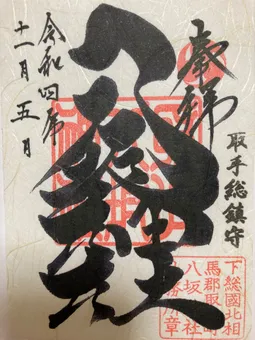 奉拜
取手総鎮守
八坂神社
下総國北相
馬郡取手町
八坂神社
社務所章
令和四年
十一月五日